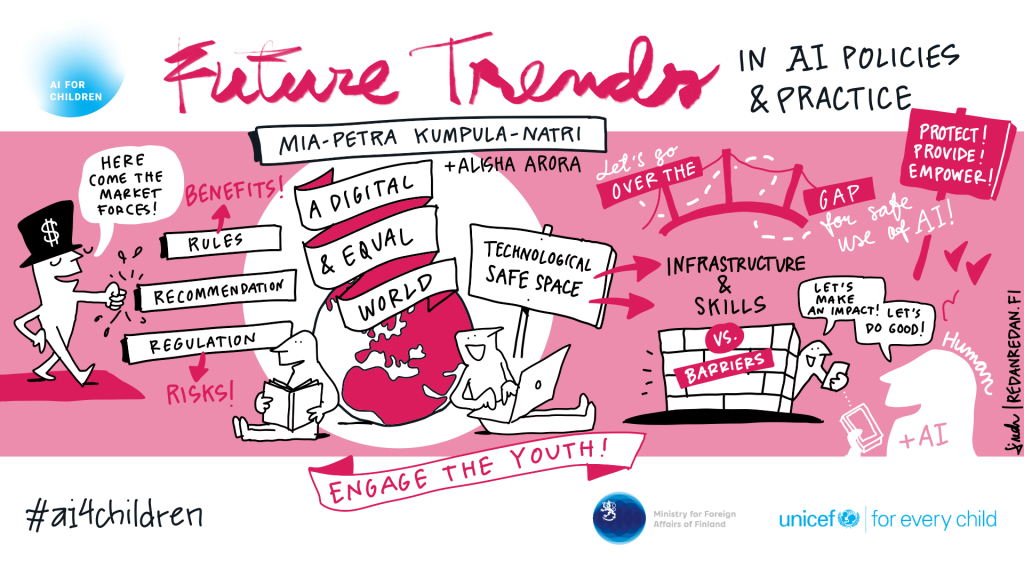 AI FOR
CHILDREN
Future Trends
IN AI POLICIES
& PRACTICE
MIA-PETRA KUMPULA-NATRI
+ALISHA ARORA
HERE
COME THE
MARKET
FORCES!
$
BENEFITS!
RULES
RECOMMENDATION
REGULATION
RISKS!
A DIGITAL
& EQUAL
WORLD
TECHNOLOGICAL
SAFE SPACE
Let's go
OVER THE
GAP
for safe
use of AI!
PROTECT!
PROVIDE!
EMPOWER!
INFRASTRUCTURE
&
SKILLS
VS.
BARRIERS
LET'S
MAKE
AN IMPACT!
LET'S
DO GOOD!
Human
+AI
| REDANREDAN.FI
ENGAGE THE YOUTH!
#ai4children
Ministry for Foreign
Affairs of Finland
unicef | for every child